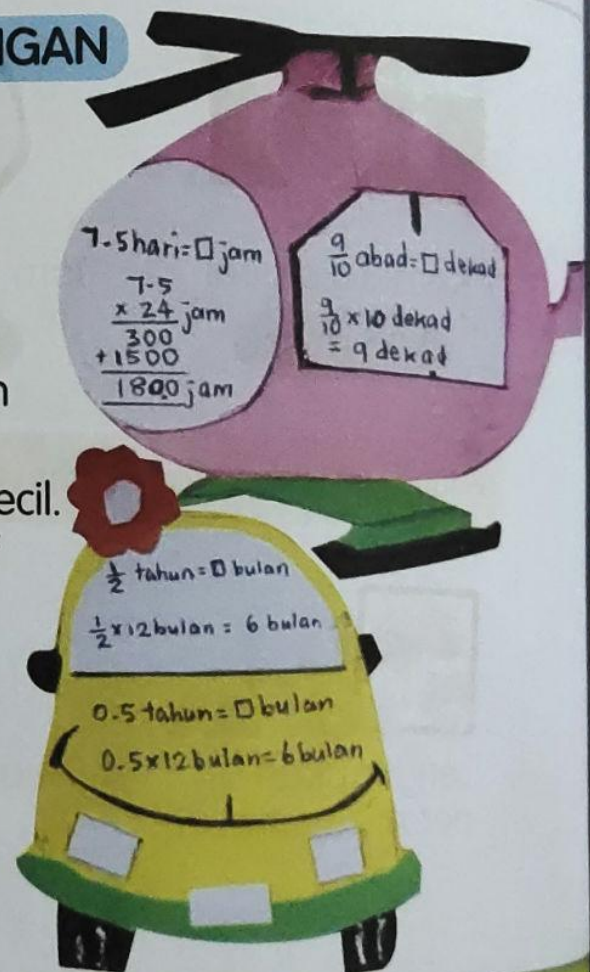 NGAN
7.5 hari = □ jam
7.5
× 24 jam
300
+1500
180.0 jam
9/10 abad = □ dekad
9/10 × 10 dekad
= 9 dekad
n
ecil.
1/2 tahun = □ bulan
1/2 × 12 bulan = 6 bulan
0.5 tahun = □ bulan
0.5 × 12 bulan = 6 bulan